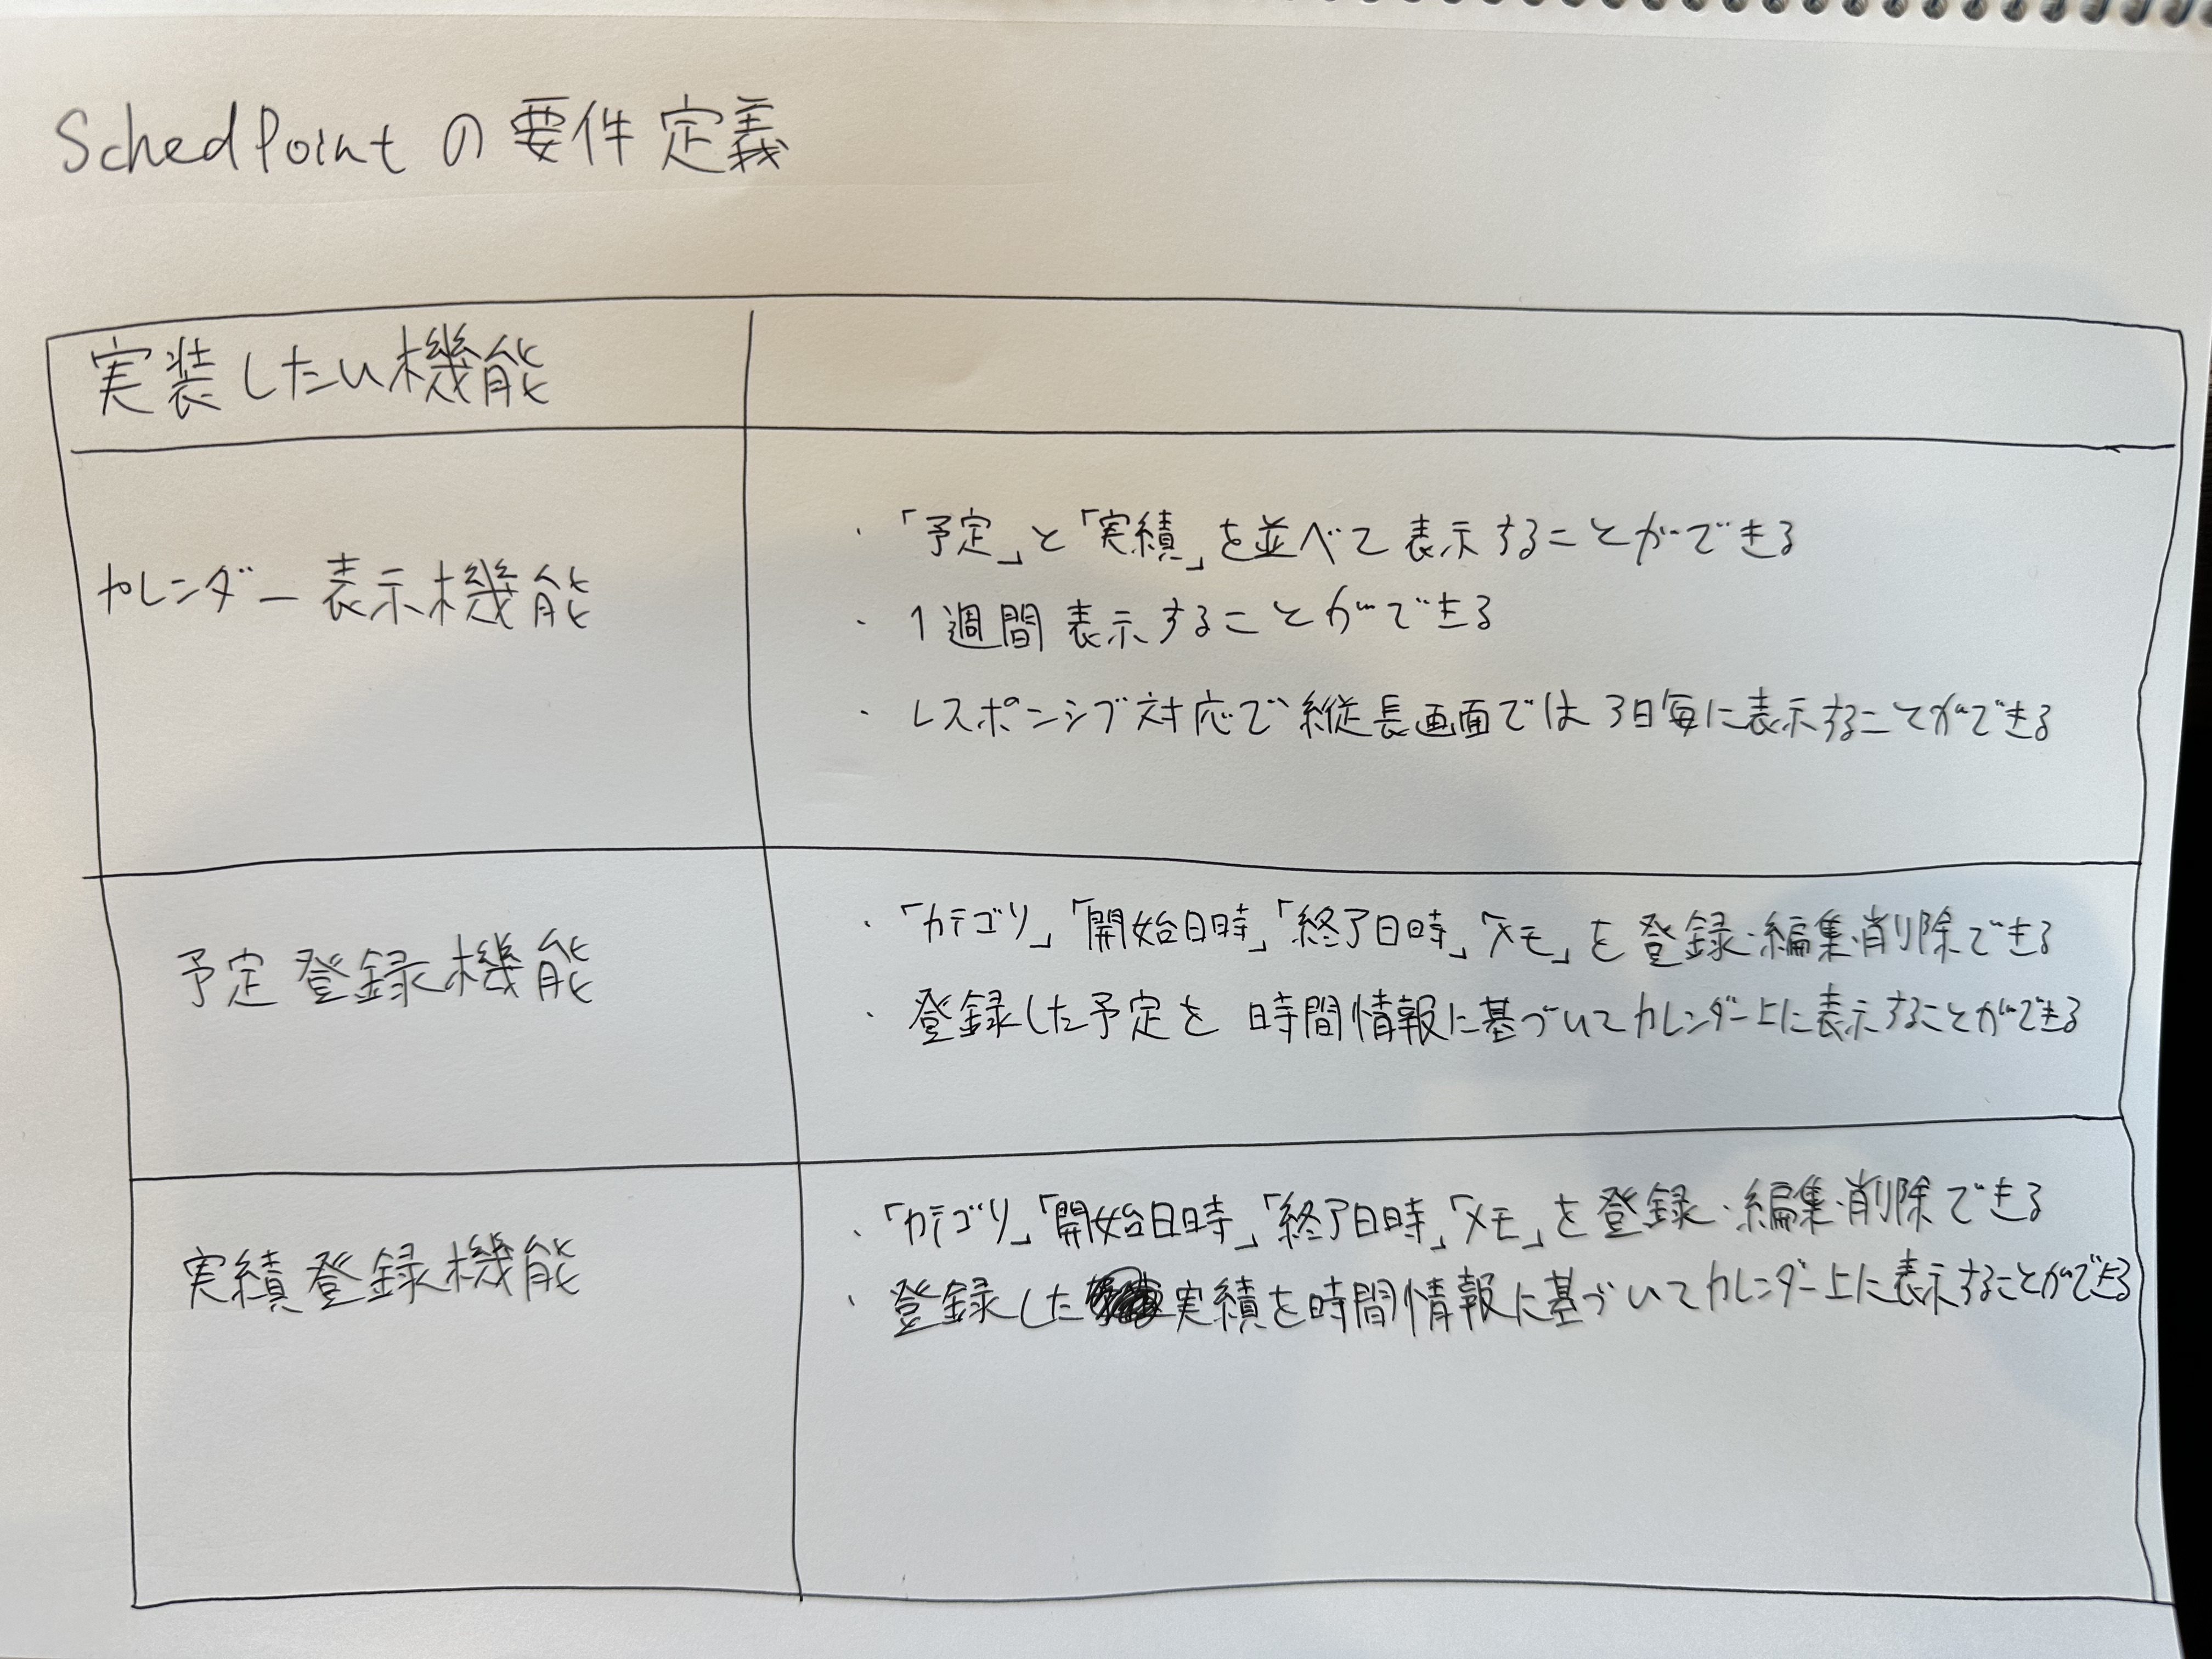 SchedPointの要件定義
実装したい機能
カレンダー表示機能
・「予定」と「実績」を並べて表示することができる
・1週間表示することができる
・レスポンシブ対応で縦長画面では3日毎に表示することができる
予定登録機能
・「カテゴリ」「開始日時」「終了日時」「メモ」を登録・編集・削除できる
・登録した予定を時間情報に基づいてカレンダー上に表示することができる
実績登録機能
・「カテゴリ」「開始日時」「終了日時」「メモ」を登録・編集・削除できる
・登録した実績を時間情報に基づいてカレンダー上に表示することができる